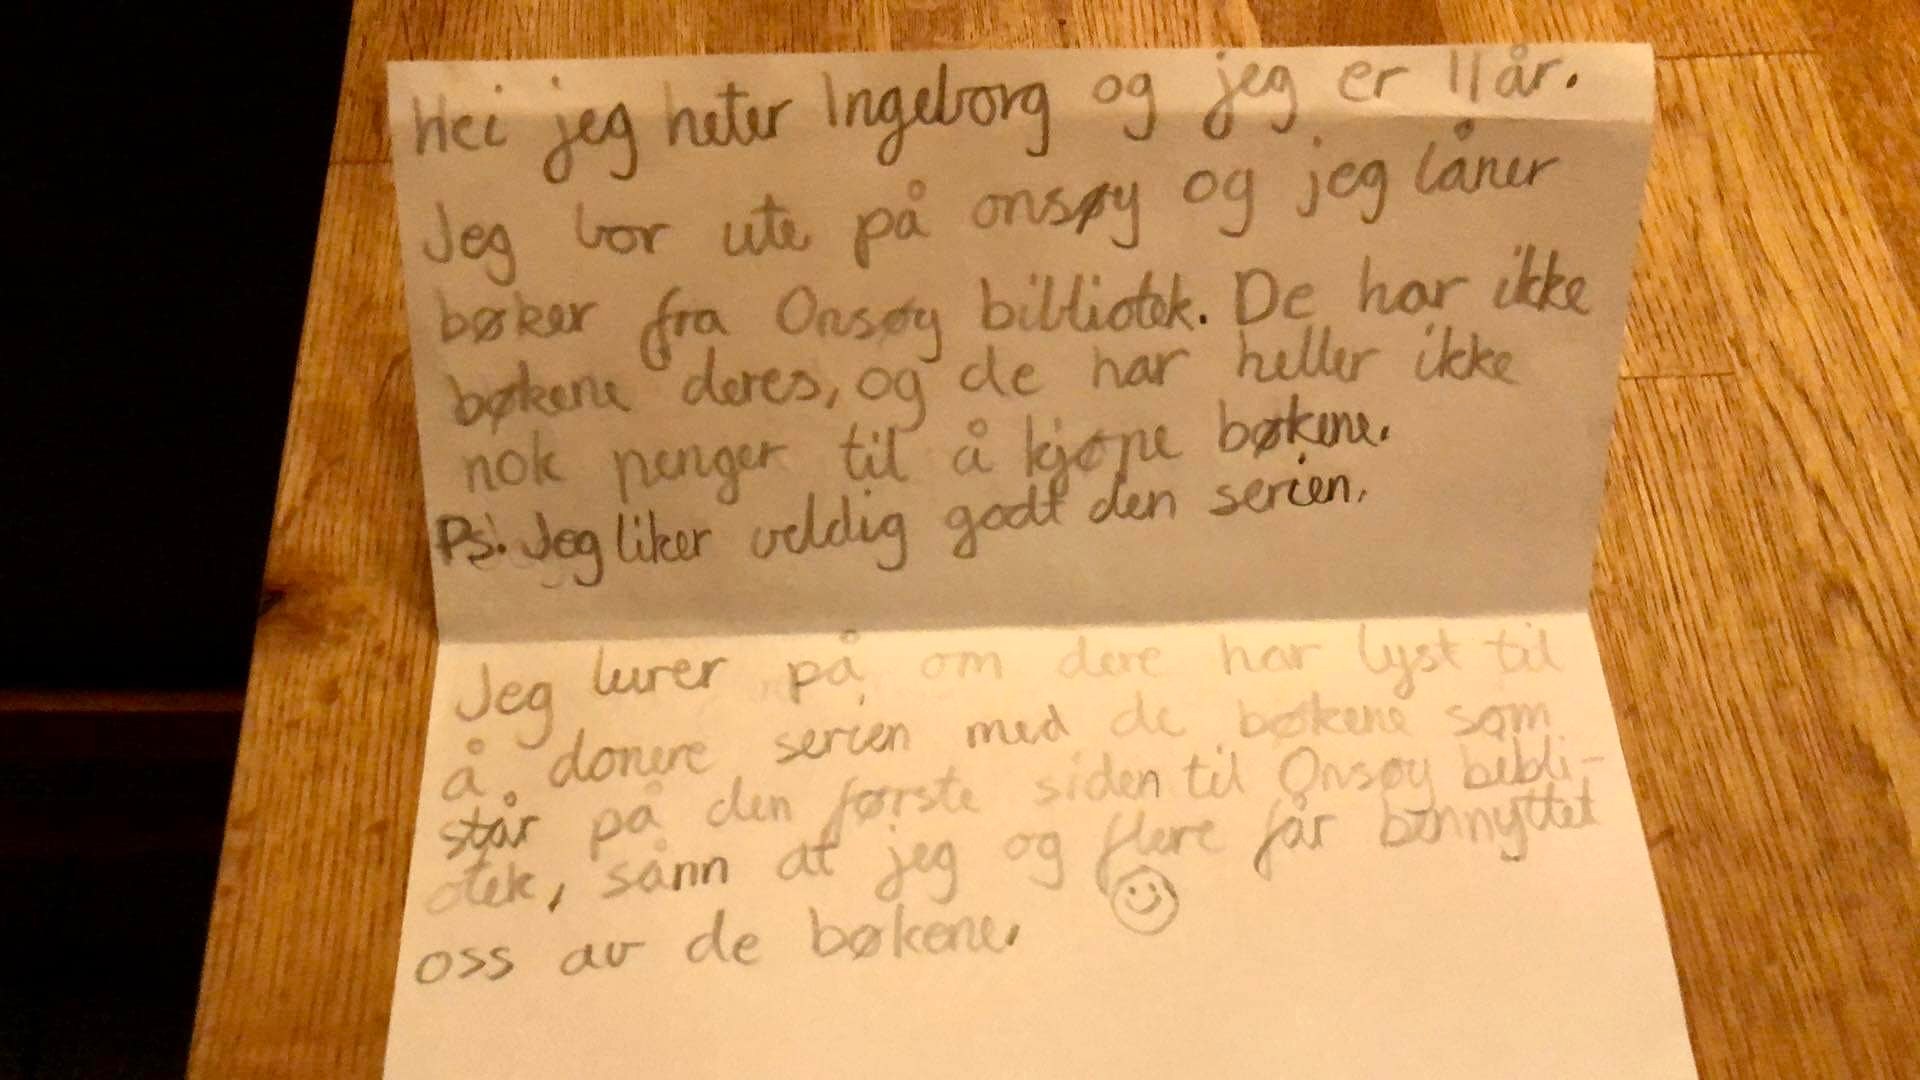 Hei jeg heter Ingeborg og jeg er 11 år.
Jeg bor ute på onsøy og jeg låner
bøker fra Onsøy bibliotek. De har ikke
bøkene deres, og de har heller ikke
nok penger til å kjøpe bøkene.
Ps: Jeg liker veldig godt den serien.
Jeg lurer på om dere har lyst til
å donere serien med de bøkene som
står på den første siden til Onsøy bibli-
otek, sånn at jeg og flere får bennyttet
oss av de bøkene.